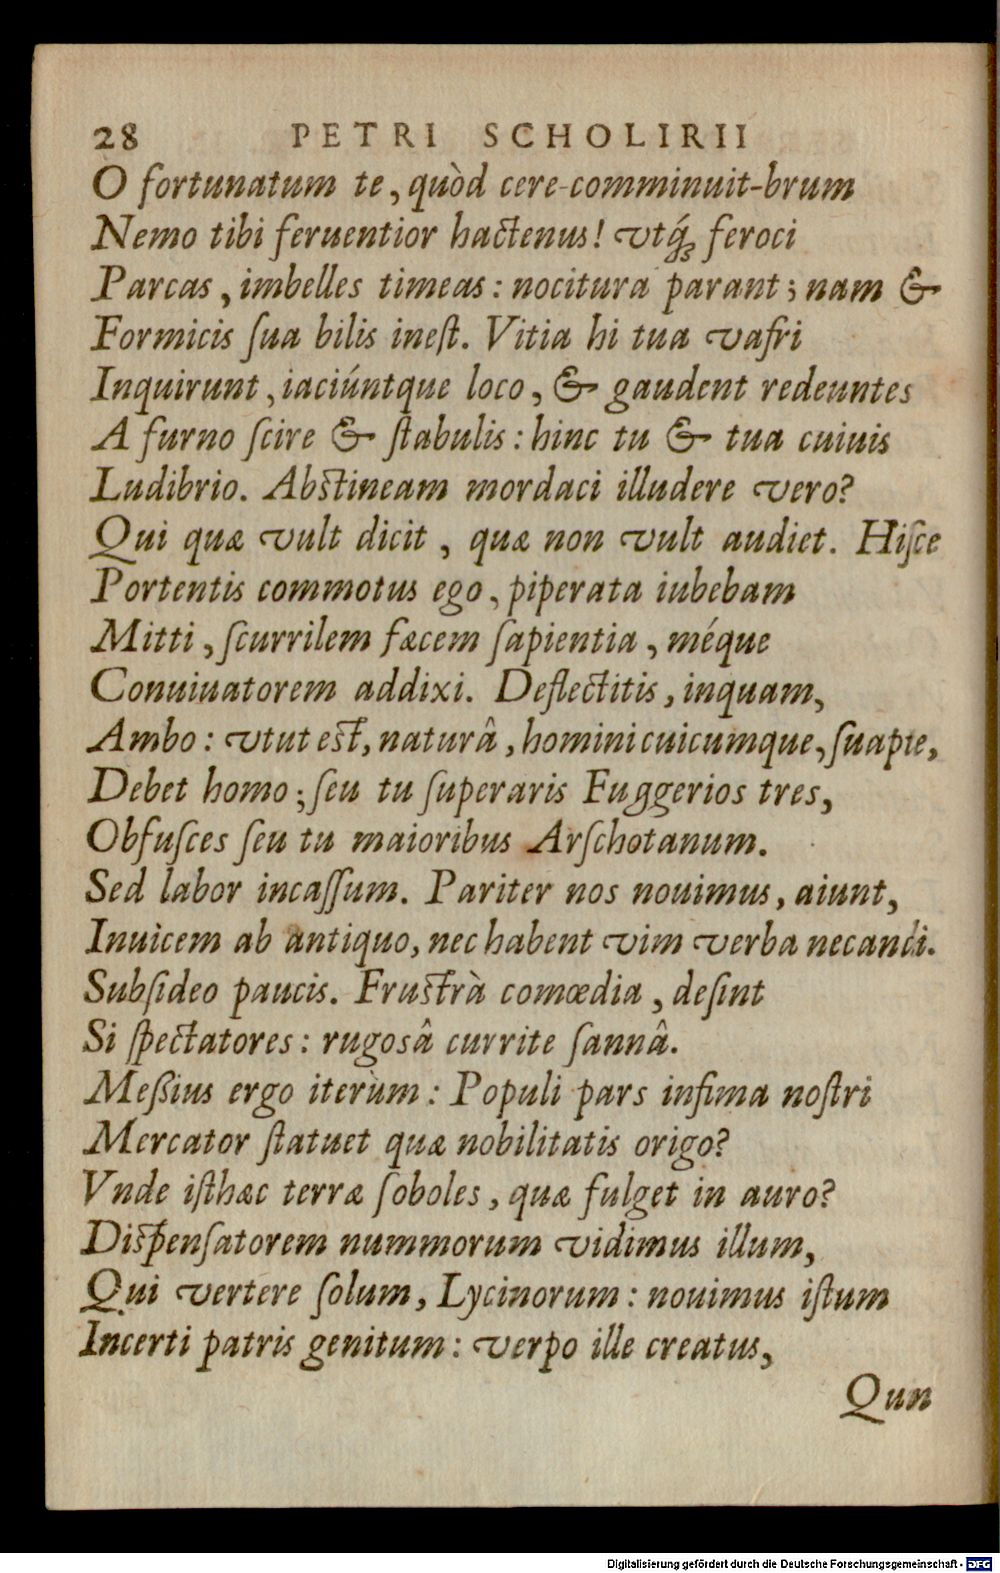 28 PETRI SCHOLIRII
O fortunatum te, quòd cere-comminuit-brum
Nemo tibi feruentior hactenus! vtq́ꝫ feroci
Parcas, imbelles timeas: nocitura parant; nam &
Formicis ſua bilis ineſt. Vitia hi tua vafri
Inquirunt, iaciúntque loco, & gaudent redeuntes
A furno ſcire & ſtabulis: hinc tu & tua cuiuis
Ludibrio. Abſtineam mordaci illudere vero?
Qui quæ vult dicit, quæ non vult audiet. Hiſce
Portentis commotus ego, piperata iubebam
Mitti, ſcurrilem fæcem ſapientia, méque
Conuiuatorem addixi. Deflectitis, inquam,
Ambo: vtut eſt, naturâ, homini cuicumque, ſuapte,
Debet homo; ſeu tu ſuperaris Fuggerios tres,
Obfuſces ſeu tu maioribus Arſchotanum.
Sed labor incaſſum. Pariter nos nouimus, aiunt,
Inuicem ab antiquo, nec habent vim verba necandi.
Subſideo paucis. Fruſtrà comœdia, deſint
Si ſpectatores: rugosâ currite ſannâ.
Meßius ergo iterùm: Populi pars infima noſtri
Mercator ſtatuet quæ nobilitatis origo?
Vnde iſthæc terræ ſoboles, quæ fulget in auro?
Diſpenſatorem nummorum vidimus illum,
Qui vertere ſolum, Lycinorum: nouimus iſtum
Incerti patris genitum: verpo ille creatus,
Qun
Digitalisierung gefördert durch die Deutsche Forschungsgemeinschaft - DFG